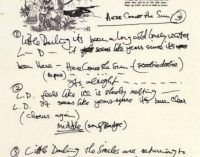 Here Comes the Sun
① Little Darling its been a long cold lonely winter
L — D — it seems like years since its
been Here — Here Comes the Sun (scoobie doobie)
(repeat) Its alright —
② L.D. feels like ice is slowly melting
L.D. it seems like years since its been clear
(chorus again)
middle
③ Little Darling the smiles are returning to